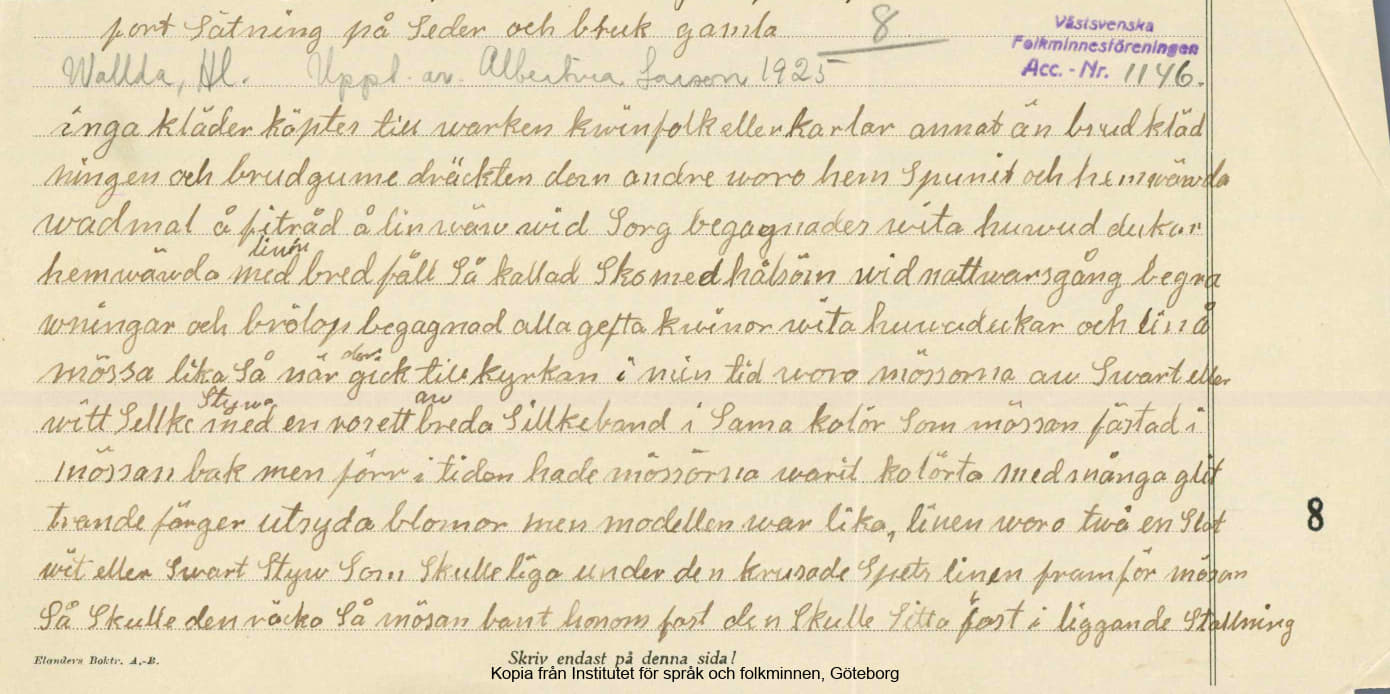 fort Sätning på Seder och bruk gamla 8
Västsvenska
Folkminnesföreningen
Acc. - Nr. 1146.
Wallda, Hl. Uppt. av Albertina Larson 1925
inga kläder köptes till warken kwinfolk eller karlar annat än brud kläd
ningen och brudgume dräckten dom andre woro hem Spunit och hemwäwda
wadmal å fitråd å lin wäw wid Sorg begagnades wita huwud dukar
linön
hemwäwda med bred fåll Så kallad Sko med hålsöm wid nattwarsgång begra
wningar och brölop begagnad alla gefta kwinor wita huwudukar och lin å
dom
mössa lika Så när gick till kyrkan i min tid woro mössorna aw Swart eller
Stywa aw
witt Sellke med en rosett breda Sillkeband i Sama kolör Som mössan fästad i
mössan bak men förr i tiden hade mössörna warit kolörta med många glit
trande färger utsyda blomor men modellen war lika, linen woro twå en Slät
wit eller Swart Styw Som Skulle liga under den krusade Spets linen framför mösan
Så Skulle den räcka Så mösan bant honom fast den Skulle Sitta fast i liggande Stallning
8
Elanders Boktr. A.-B.
Skriv endast på denna sida!
Kopia från Institutet för språk och folkminnen, Göteborg